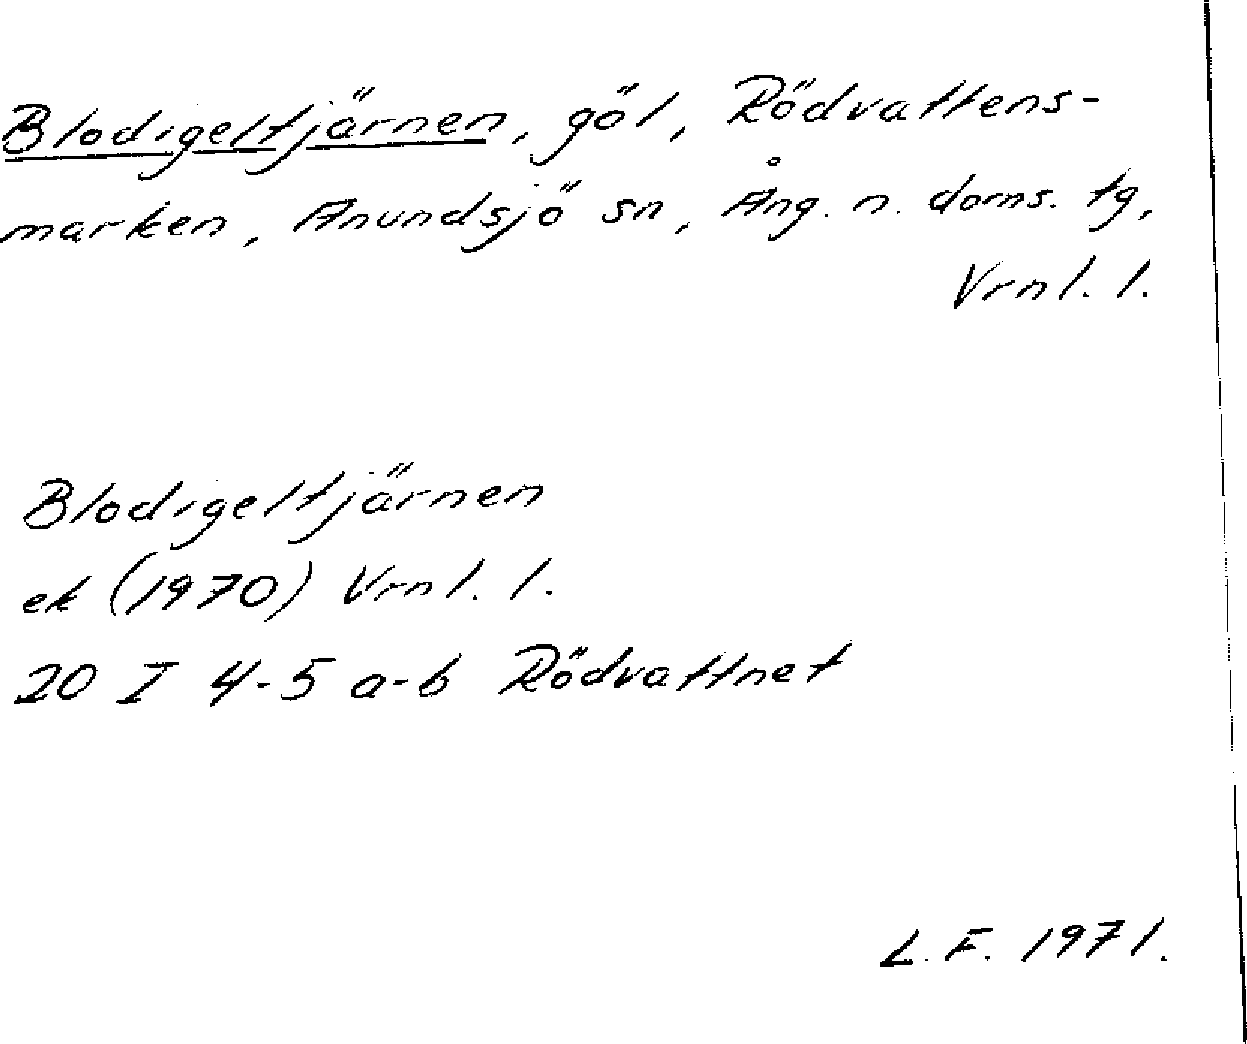 Blodigeltjärnen, göl, Rödvattens-
marken, Anundsjö sn, Ång. n. doms. tg,
Vrnl. l.
Blodigeltjärnen
ek (1970) Vrnl. l.
20 I 4-5 a-b Rödvattnet
L. F. 1971.